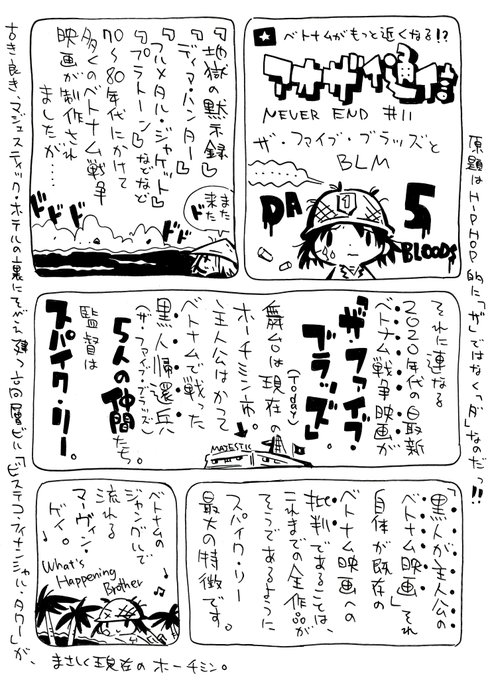 ベトナムがもっと近くなる!?
NEVER END #11
ザ・ファイブ・ブラッズと
BLM
DA 5 BLOODS
『地獄の黙示録』
『ディア・ハンター』
『フルメタル・ジャケット』
『プラトーン』などなど
70〜80年代にかけて
多くのベトナム戦争
映画が制作され
ましたが…
また
来た
ドドド
ドドド
それに連なる
2020年代の最新
ベトナム戦争映画が
『ザ・ファイブ・
ブラッズ』
舞台は現在の
(Today)
ホーチミン市。
主人公はかつて
ベトナムで戦った
黒人帰還兵
(ザ・ファイブ・ブラッズ)
5人の仲間たち。
監督は
スパイク・リー。
MAJESTIC
「黒人が主人公の
ベトナム映画」それ
自体が既存の
ベトナム映画への
批判であることは、
これまでの全作品が
そうであるように
スパイク・リー
最大の特徴です。
ベトナムの
ジャングルで
流れる
マーヴィン・
ゲイ。
What's
Happening
Brother
原題はHIPHOP的に「ザ」ではなく「ダ」なのだっ!!
古き良き、マジェスティック・ホテルの裏にそびえ建つ高層ビル「ビテスコ・フィナンシャル・タワー」が、
まさしく現在のホーチミン。